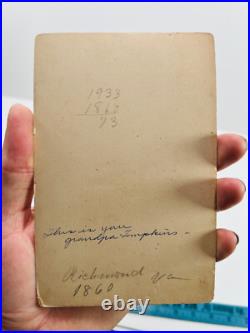 1933
1860
73
This is your
grandpa Tompkins -
Richmond Va
1860